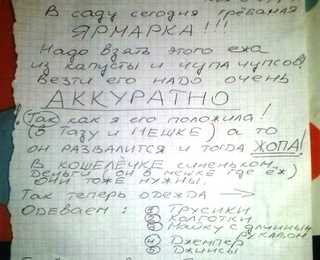 В саду сегодня грёбаная
ЯРМАРКА!!!
Надо взять этого ежа
из капусты и чупа чупсов!
Везти его надо очень
АККУРАТНО
! Так как я его положила!
(в тазу и мешке) а то
он развалится и тогда ЖОПА!
В кошелёчке синеньком
деньги (он в мешке где ёж)
они тоже нужны.
Так теперь одежда →
Одеваем: ① Трусики
② Колготки
③ Майку с длинным
рукавом
④ Джемпер
⑤ Джинсы